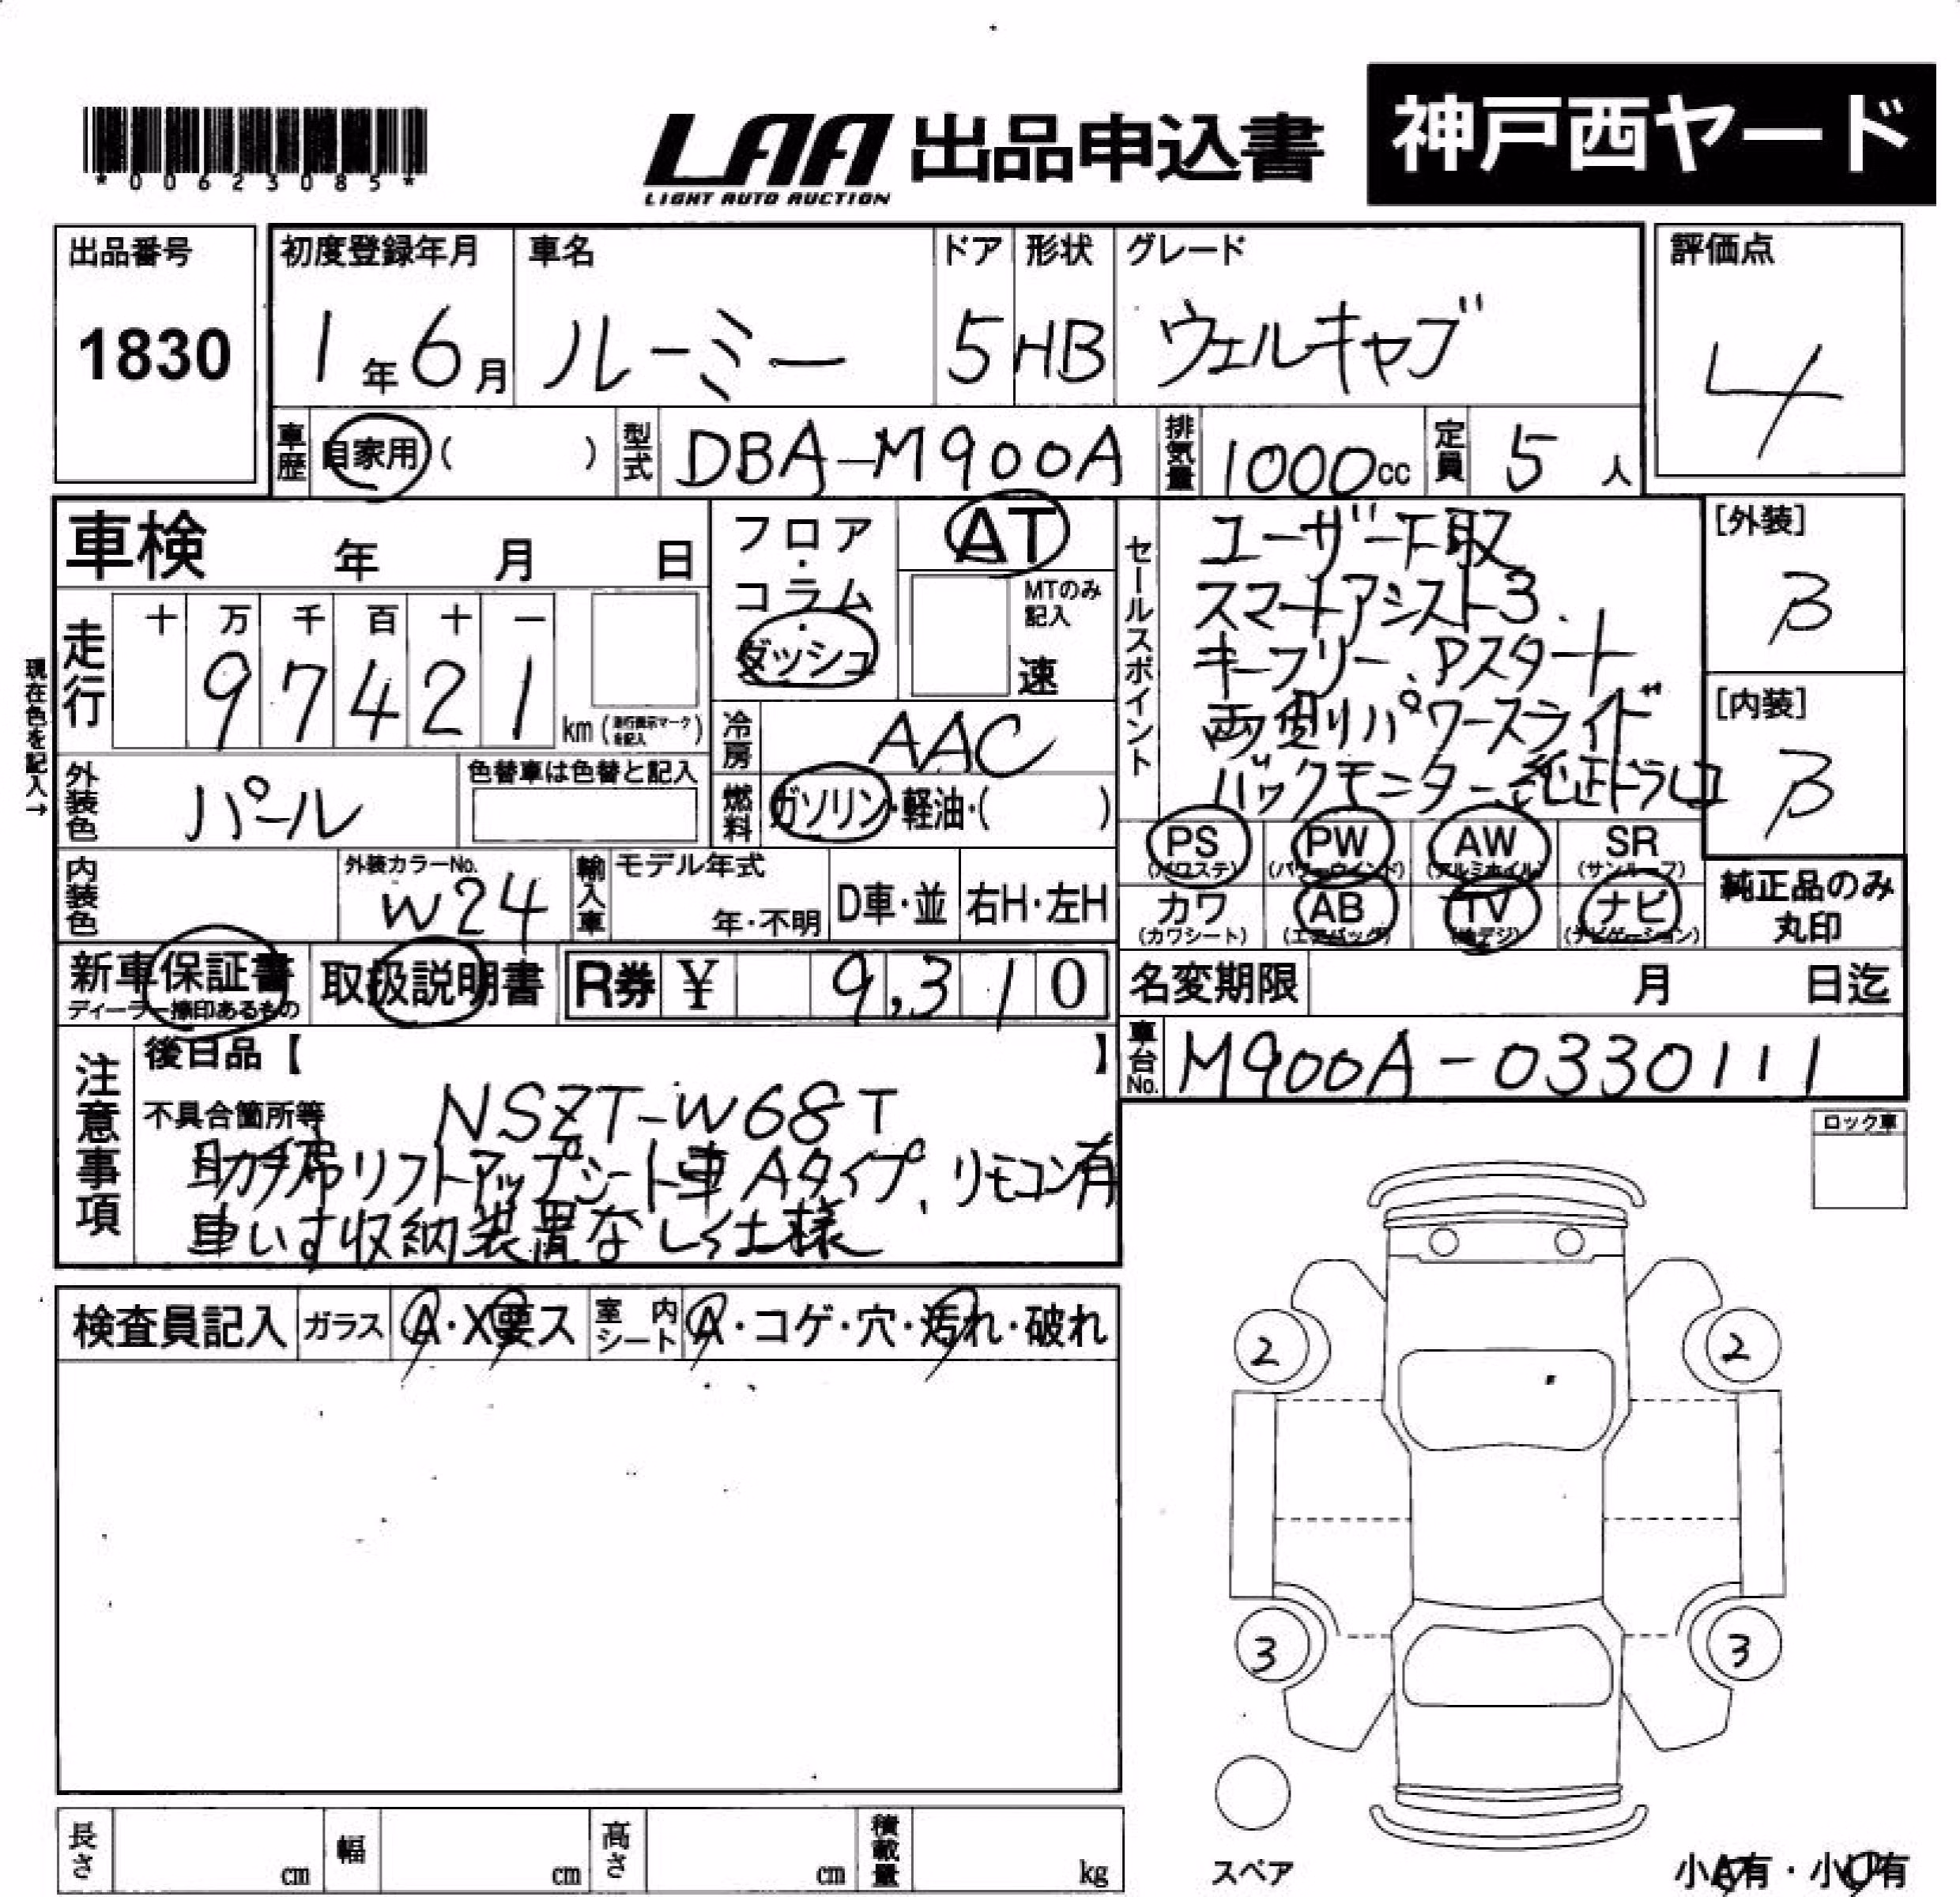 *00623085*
LAA 出品申込書 神戸西ヤード
LIGHT AUTO AUCTION
出品番号 初度登録年月 車名 ドア 形状 グレード 評価点
1830 1年6月 ルーミー 5 HB ウェルキャブ 4
車歴 自家用( ) 型式 DBA-M900A 排気量 1000cc 定員 5人
車検 年 月 日
フロア・コラム・ダッシュ
AT
MTのみ記入
速
セールスポイント
ユーザー下取
スマートアシスト3
キーフリー、Pスタート
両側パワースライド
バックモニター 純正ドラレコ
[外装]
B
[内装]
B
現在色を記入→
走行 十 万 千 百 十 一
97421
km(走行表示マークを記入)
冷房 AAC
外装色 パール 色替車は色替と記入
燃料 ガソリン・軽油・( )
PS PW AW SR
(パワステ) (パワーウインド) (アルミホイル) (サンルーフ)
カワ AB TV ナビ
(カワシート) (エアバッグ) (地デジ) (ナビゲーション)
純正品のみ
丸印
内装色 外装カラーNo. W24 輸入車 モデル年式 年・不明 D車・並 右H・左H
新車保証書 取扱説明書 R券 ¥ 9,310
ディーラー捺印あるもの
名変期限 月 日迄
車台No. M900A-0330111
注意事項
後日品【 】
不具合箇所等 NSZT-W68T
助手席リフトアップシート車 Aタイプ、リモコン有
車いす収納装置なし仕様
ロック車
検査員記入 ガラス A・X要ス 室内シート A・コゲ・穴・汚れ・破れ
2 2
3 3
スペア
小A有・小U有
長さ cm 幅 cm 高さ cm 積載量 kg